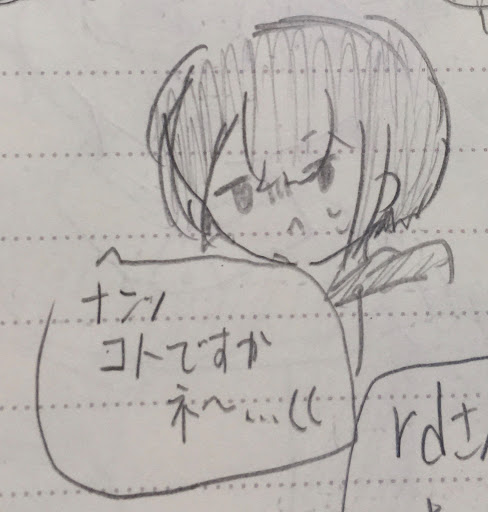 ナンノ
コトですか
ネ〜…((
rdさん